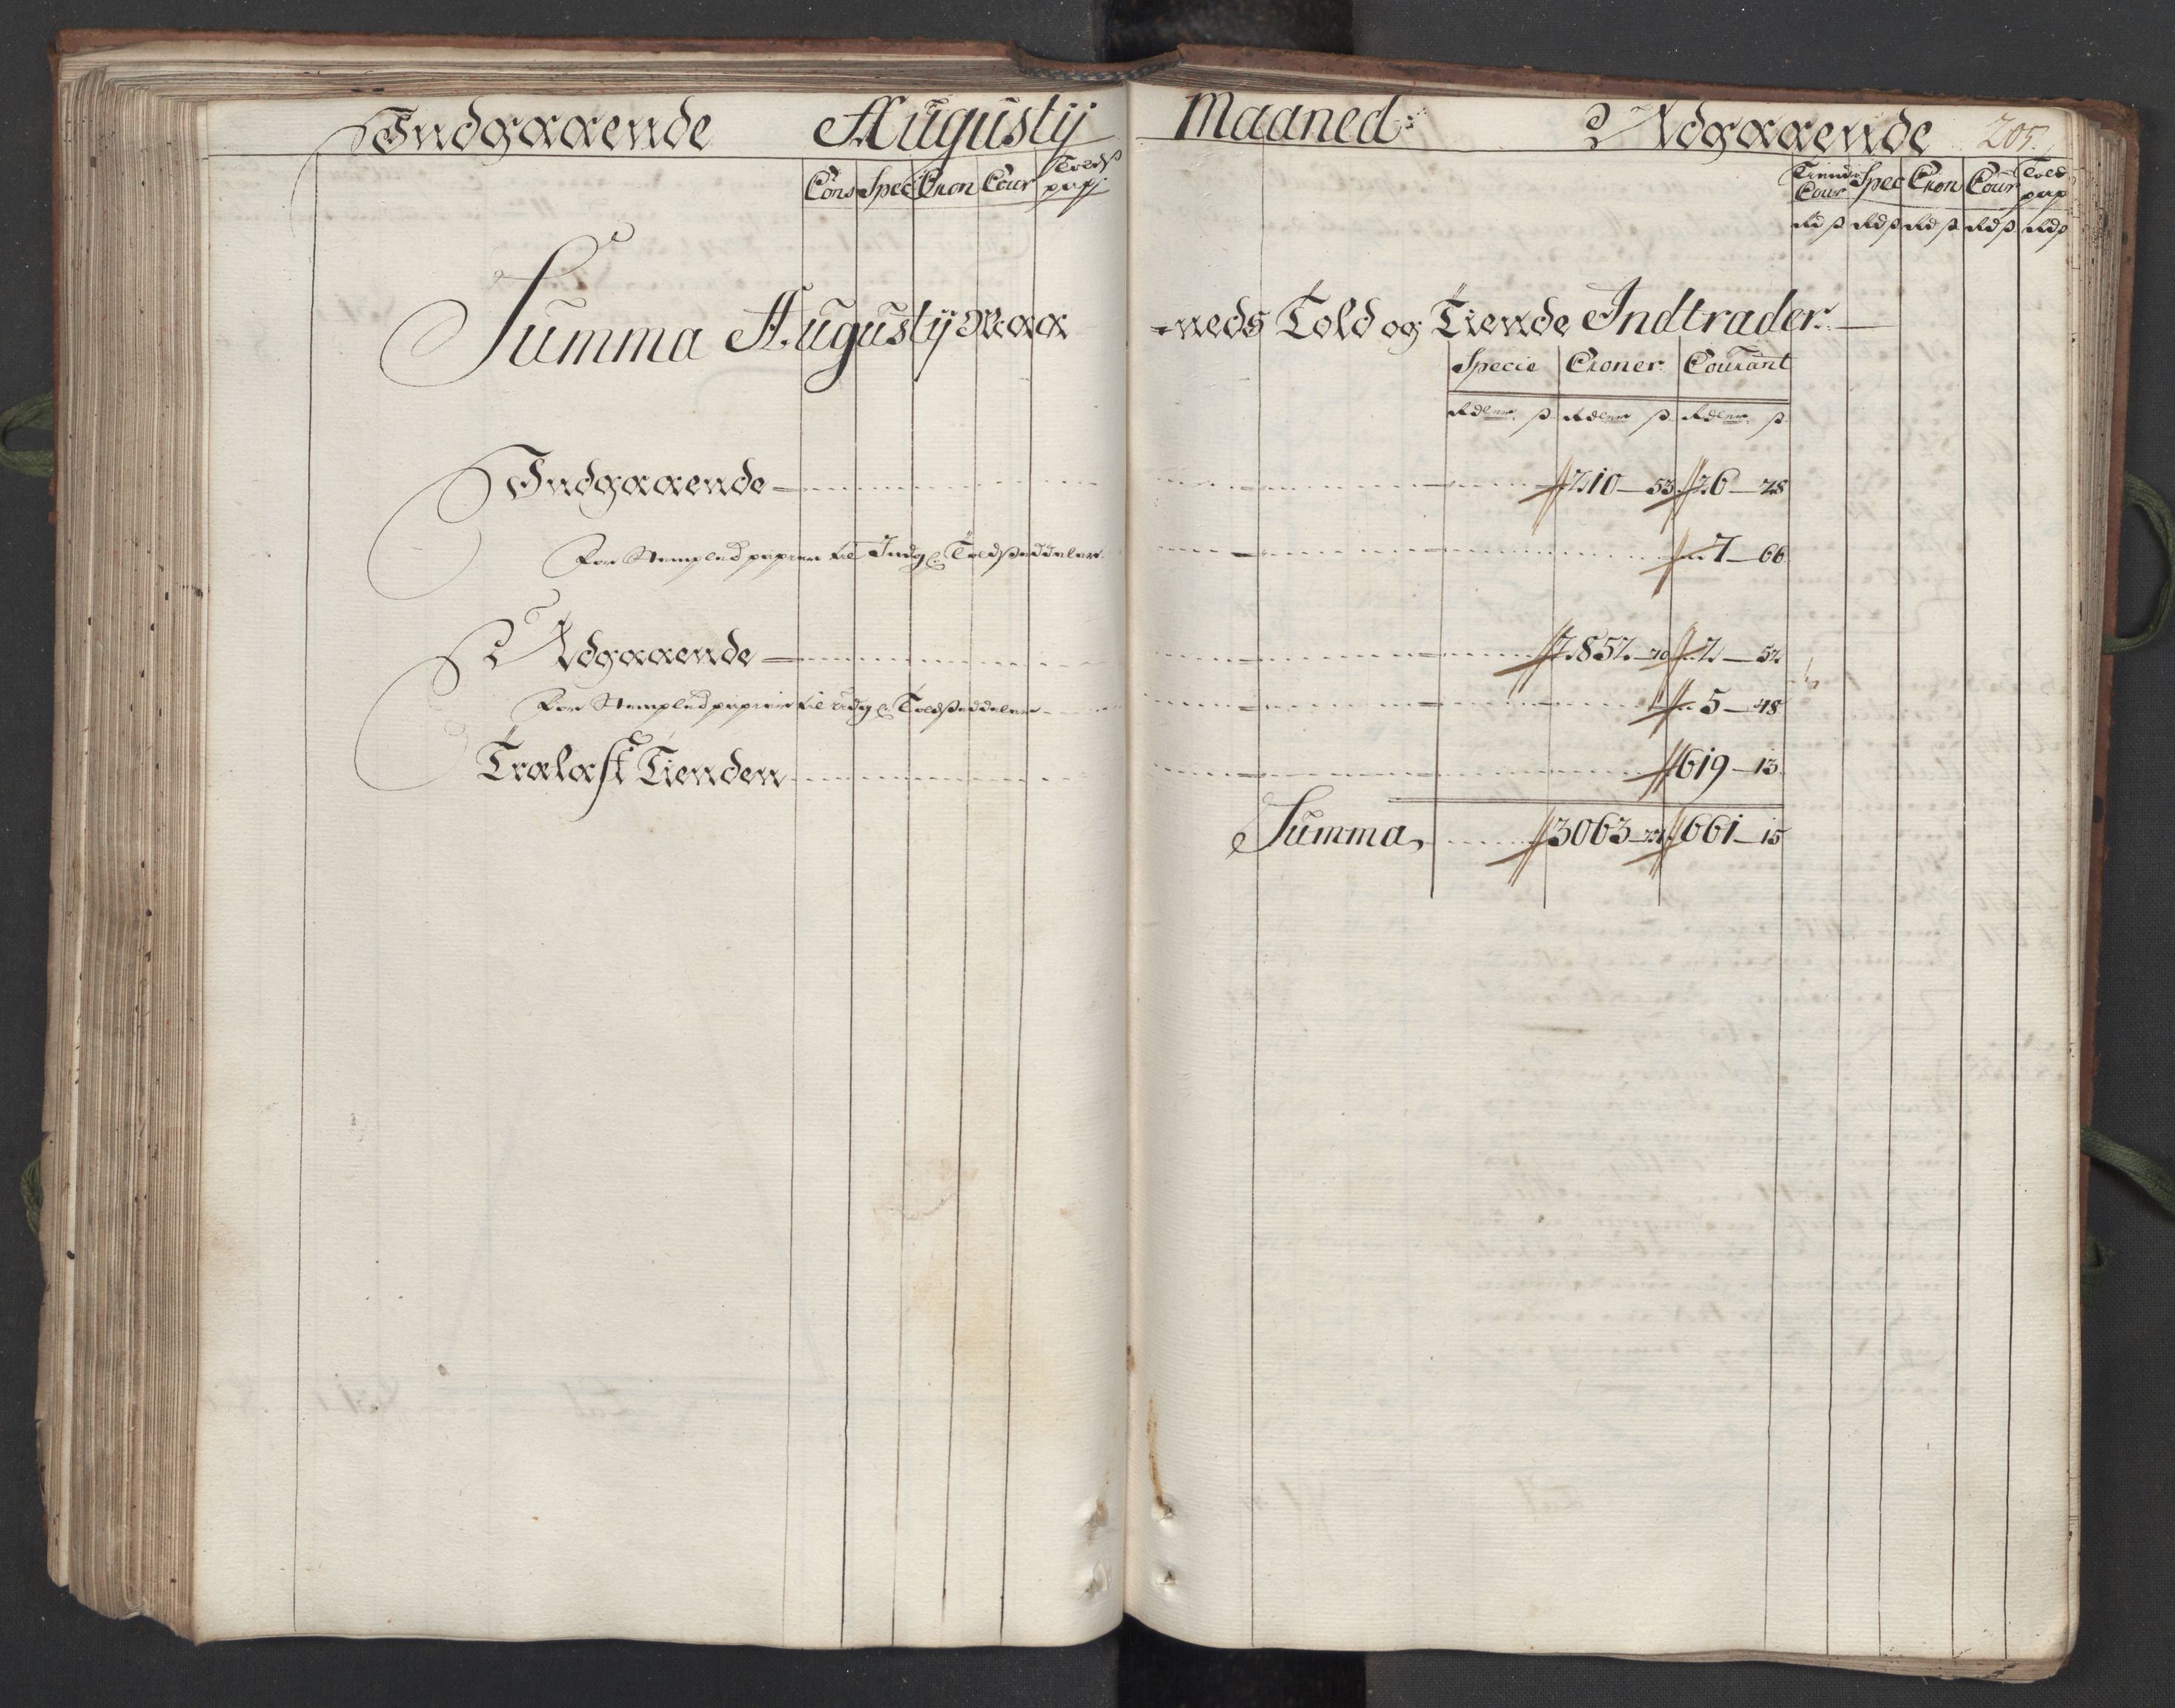 Indgaaende Augustij Maaned: Udgaaende 205.
Cons Spec Cron Cour Told papp
Tiende Cour Spec Cron Cour Told pap
Rd ß Rd ß Rd ß Rd ß Rd ß
Summa Augustij Maa =neds Told og Tiende Indtrader.
Specie Croner Courant
Rdler ß. Rdler ß. Rdler ß
Indgaaende 210 53 26 28
For Stempled papier til Indg: Toldsedler 7 66
Udgaaende 2852 70 2 52
For Stempled papier til udg: Toldsedler 5 48
Trælast Tienden 619 13
Summa 3063 27 661 15